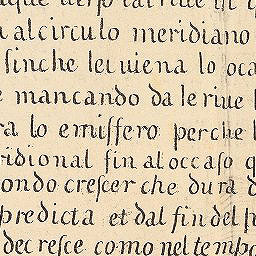 al circulo meridiano
sinche lei uiena lo
mancando da le riue
lo emissero perche
ridional fin al occaso q
ondo crescer che dura
predicta et dal fin del
decresce como nel tempo